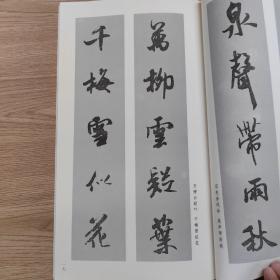 泉聲帶雨秋
萬柳雲疑葉
千梅雪似花